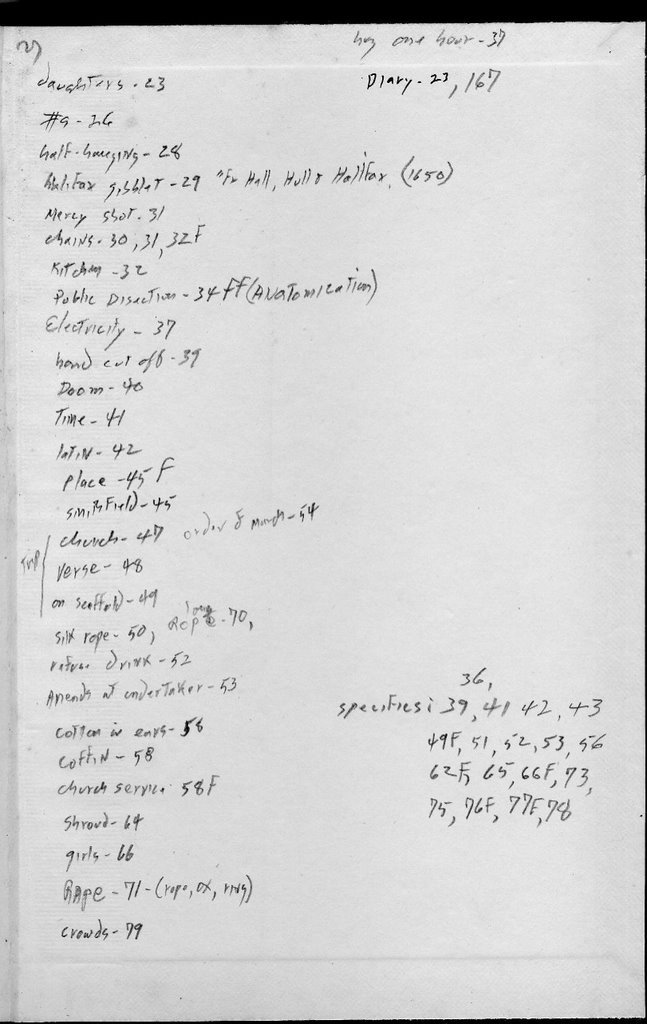 hung one hour - 37
Diary - 23, 167
daughters - 23
#9 - 26
half-hanging - 28
Halifax gibblet - 29 "Fr Hell, Hull & Hallifax, (1650)
Mercy shot - 31
chains - 30, 31, 32F
Kitchen - 32
Public Disection - 34ff (Anatomization)
Electricity - 37
hand cut off - 39
Doom - 40
Time - 41
latin - 42
Place - 45F
Smithfield - 45
church - 47 order of march - 54
Verse - 48
on scaffold - 49
silk rope - 50, long Rope - 70,
refuse drink - 52
Amends at undertaker - 53
cotton in ears - 58
Coffin - 58
church service 58F
Shroud - 64
girls - 66
Rape - 71 - (rope, ox, ring)
crowds - 79
36,
specifics: 39, 41 42, 43
49F, 51, 52, 53, 56
62F, 65, 66F, 73,
75, 76F, 77F, 78